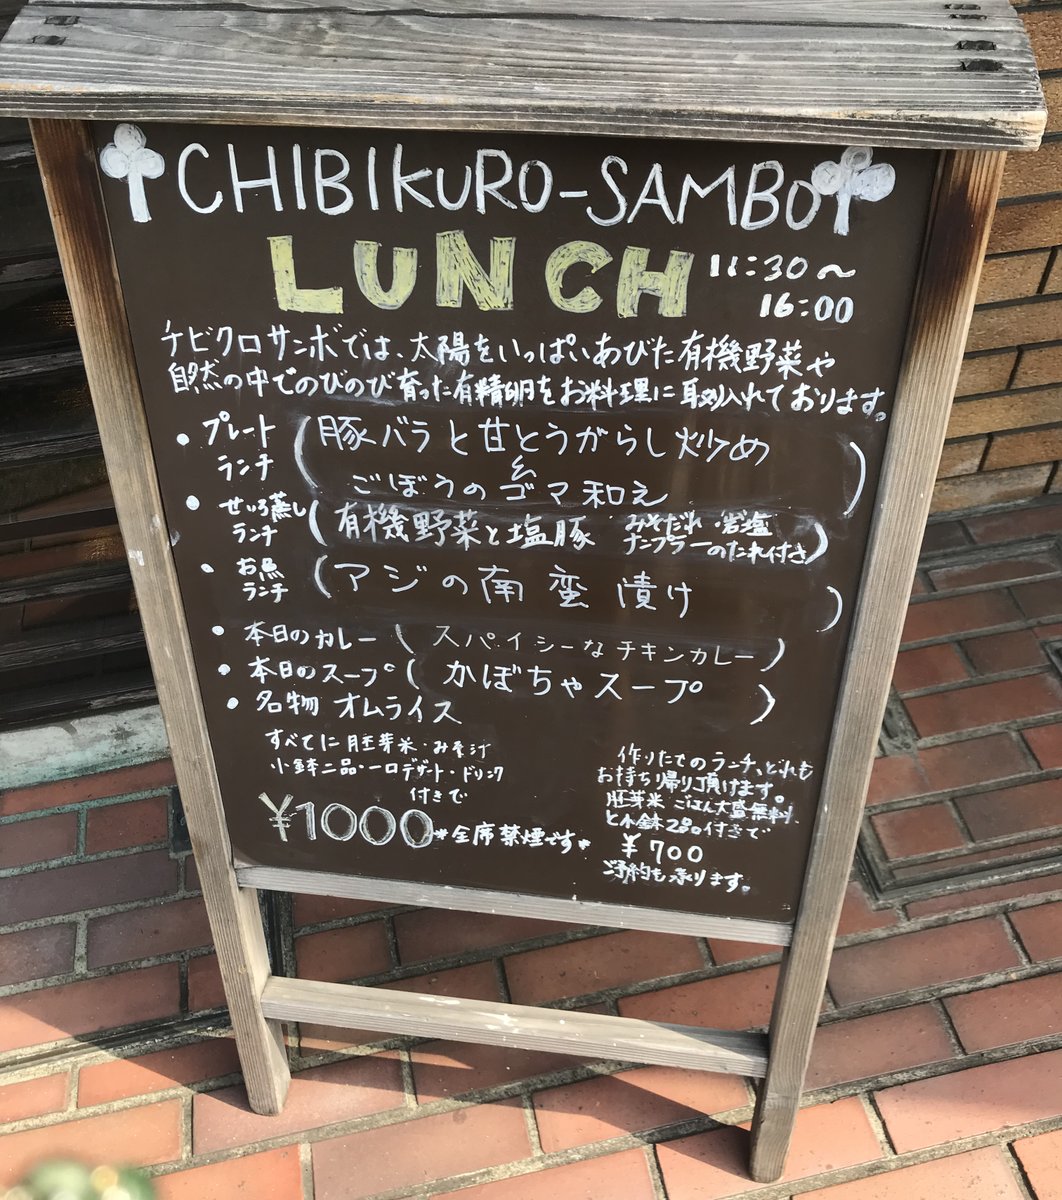 CHIBIKURO-SAMBO
LUNCH 11:30〜
16:00
チビクロサンボでは、太陽をいっぱいあびた有機野菜や
自然の中でのびのび育った有精卵をお料理に取り入れております。
・プレートランチ（豚バラと甘とうがらし炒め
ごぼうのゴマ和え）
・せいろ蒸しランチ（有機野菜と塩豚 みそだれ・岩塩
ナンプラーのたれ付き）
・お魚ランチ（アジの南蛮漬け）
・本日のカレー（スパイシーなチキンカレー）
・本日のスープ（かぼちゃスープ）
・名物 オムライス
すべてに胚芽米・みそ汁
小鉢二品・一口デザート・ドリンク
付きで
¥1000 *全席禁煙です*
作りたてのランチ、どれも
お持ち帰り頂けます。
胚芽米 ごはん大盛無料
と小鉢2品付きで
¥700
ご予約も承ります。